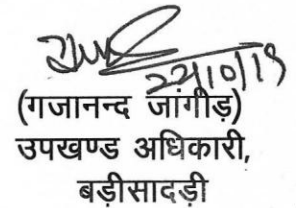 22/10/19
(गजानन्द जांगीड़)
उपखण्ड अधिकारी,
बड़ीसादड़ी